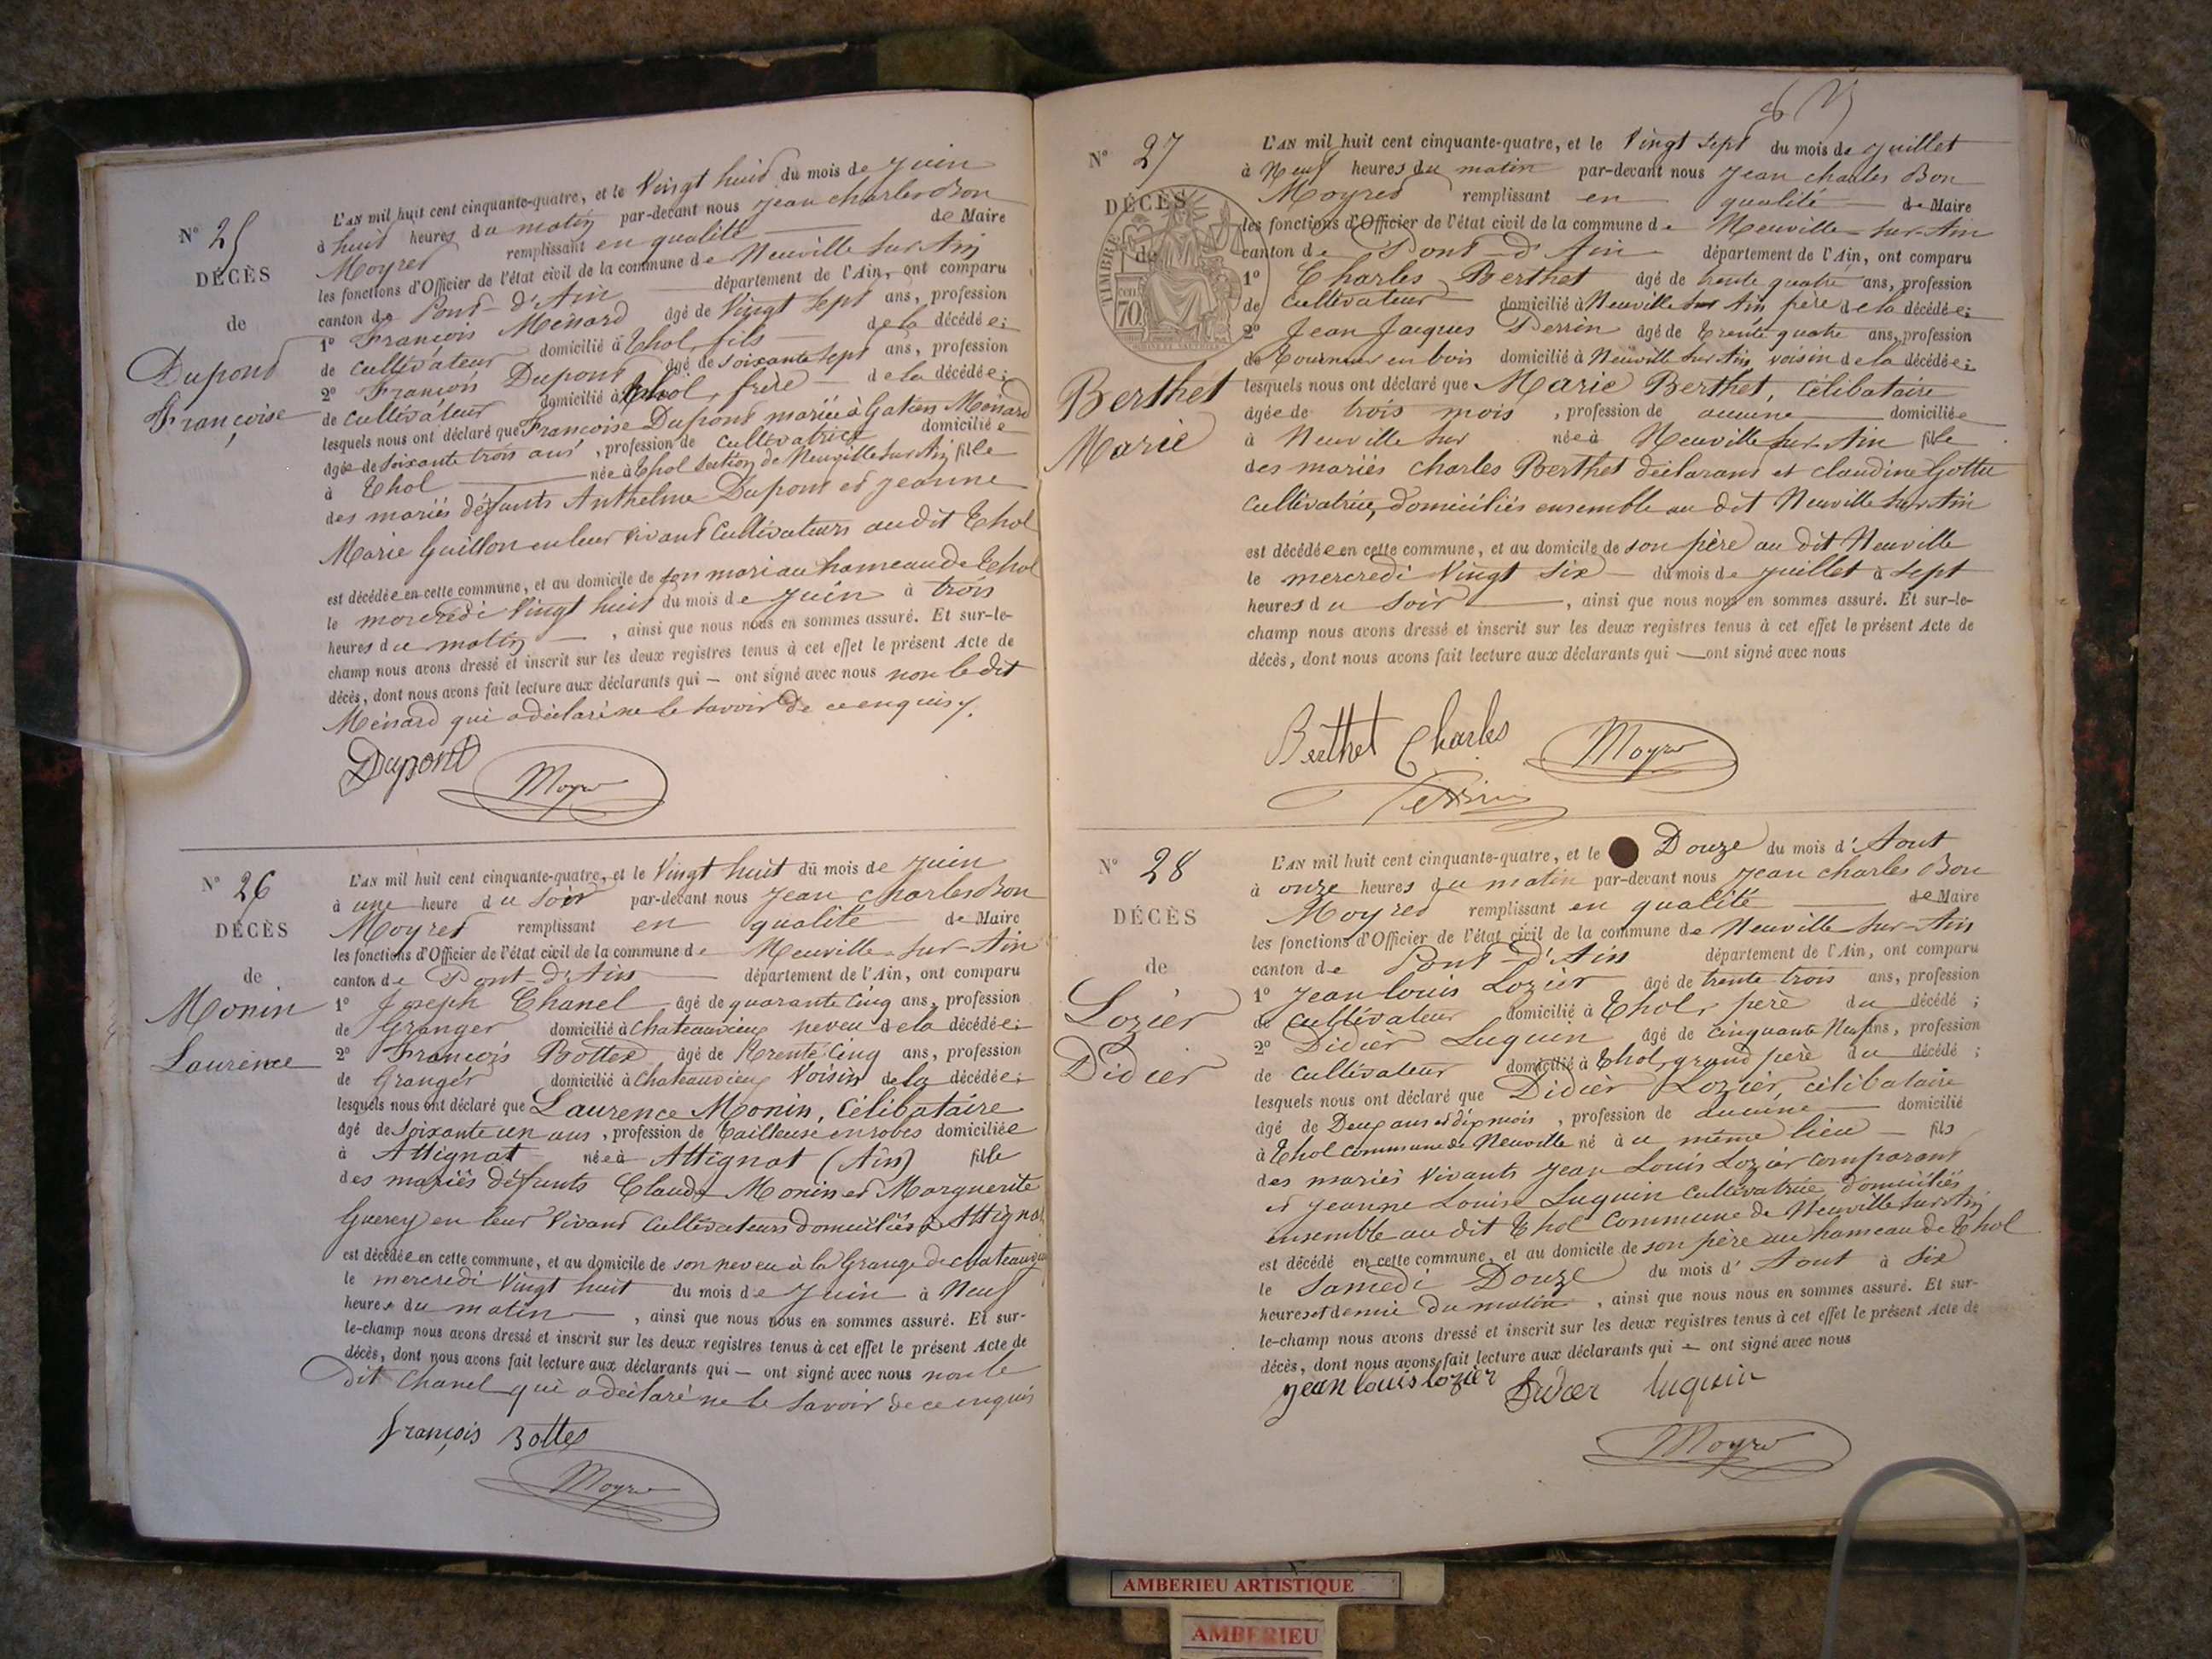 N° 25
DÉCÈS
de
Dupont
Françoise
L'AN mil huit cent cinquante-quatre, et le Vingt huit du mois de Juin
à huit heures du matin par-devant nous Jean Charles Bon
Moyret remplissant en qualité de Maire
les fonctions d'Officier de l'état civil de la commune de Neuville sur Ain
canton de Pont-d'Ain département de l'Ain, ont comparu
1° François Ménard âgé de Vingt sept ans, profession
de cultivateur domicilié à Thol, fils de la décédée;
2° François Dupont âgé de soixante sept ans, profession
de cultivateur domicilié à Thol, frère de la décédée;
lesquels nous ont déclaré que Françoise Dupont mariée à Gatien Ménard
âgée de soixante trois ans, profession de cultivatrice domiciliée
à Thol née à Thol section de Neuville sur Ain fille
des mariés défunts Anthelme Dupont et Jeanne
Marie Guillon en leur vivant Cultivateurs au dit Thol
est décédée en cette commune, et au domicile de son mari au hameau de Thol
le mercredi Vingt huit du mois de Juin à trois
heures du matin, ainsi que nous nous en sommes assuré. Et sur-le-
champ nous avons dressé et inscrit sur les deux registres tenus à cet effet le présent Acte de
décès, dont nous avons fait lecture aux déclarants qui — ont signé avec nous non le dit
Ménard qui a déclaré ne le savoir de ce enquis.
Dupont
Moyret
N° 26
DÉCÈS
de
Monin
Laurence
L'AN mil huit cent cinquante-quatre, et le Vingt huit du mois de Juin
à une heure du soir par-devant nous Jean Charles Bon
Moyret remplissant en qualité de Maire
les fonctions d'Officier de l'état civil de la commune de Neuville-sur-Ain
canton de Pont d'Ain département de l'Ain, ont comparu
1° Joseph Chanel âgé de quarante cinq ans, profession
de Granger domicilié à Chateauvieux neveu de la décédée;
2° François Bottex âgé de trente cinq ans, profession
de Granger domicilié à Chateauvieux Voisin de la décédée;
lesquels nous ont déclaré que Laurence Monin, Célibataire
âgé de soixante un ans, profession de tailleuse en robes domiciliée
à Attignat née à Attignat (Ain) fille
des mariés défunts Claude Monin et Marguerite
en leur vivant Cultivateurs domiciliés à Attignat
est décédée en cette commune, et au domicile de son neveu à la Grange de chateauvieux
le mercredi Vingt huit du mois de Juin à Neuf
heures du matin, ainsi que nous nous en sommes assuré. Et sur-
le-champ nous avons dressé et inscrit sur les deux registres tenus à cet effet le présent Acte de
décès, dont nous avons fait lecture aux déclarants qui — ont signé avec nous non le
dit Chanel qui a déclaré ne le savoir de ce enquis
françois Bottex
Moyret
N° 27
DÉCÈS
de
TIMBRE
70
Berthet
Marie
L'AN mil huit cent cinquante-quatre, et le Vingt sept du mois de Juillet
à Neuf heures du matin par-devant nous Jean Charles Bon
Moyret remplissant en qualité de Maire
les fonctions d'Officier de l'état civil de la commune de Neuville-sur-Ain
canton de Pont-d'Ain département de l'Ain, ont comparu
1° Charles Berthet âgé de trente quatre ans, profession
de Cultivateur domicilié à Neuville sur Ain père de la décédée;
2° Jean Jacques Perrin âgé de trente quatre ans, profession
de tourneur en bois domicilié à Neuville sur Ain, voisin de la décédée;
lesquels nous ont déclaré que Marie Berthet, célibataire
âgée de trois mois, profession de aucune domiciliée
à Neuville sur née à Neuville sur-Ain fille
des mariés Charles Berthet déclarant et Claudine Gottu
Cultivatrice, domiciliés ensemble au dit Neuville sur Ain
est décédée en cette commune, et au domicile de son père au dit Neuville
le mercredi Vingt six du mois de Juillet à sept
heures du soir, ainsi que nous nous en sommes assuré. Et sur-le-
champ nous avons dressé et inscrit sur les deux registres tenus à cet effet le présent Acte de
décès, dont nous avons fait lecture aux déclarants qui — ont signé avec nous
Berthet Charles
Moyret
Perrin
N° 28
DÉCÈS
de
Lozier
Didier
L'AN mil huit cent cinquante-quatre, et le Douze du mois d'Aout
à onze heures du matin par-devant nous Jean Charles Bon
Moyret remplissant en qualité de Maire
les fonctions d'Officier de l'état civil de la commune de Neuville-sur-Ain
canton de Pont-d'Ain département de l'Ain, ont comparu
1° Jean Louis Lozier âgé de trente trois ans, profession
de cultivateur domicilié à Thol, père du décédé;
2° Didier Luquin âgé de cinquante Neuf ans, profession
de cultivateur domicilié à Thol, grand père du décédé;
lesquels nous ont déclaré que Didier Lozier, célibataire
âgé de Deux ans et dix mois, profession de aucune domicilié
à Thol commune de Neuville né à u même lieu fils
des mariés Vivants Jean Louis Lozier comparant
et Jeanne Louise Luquin Cultivatrice domiciliés
ensemble au dit Thol Commune de Neuville sur Ain
est décédé en cette commune, et au domicile de son père au hameau de Thol
le Samedi Douze du mois d'Aout à Six
heures et demie du matin, ainsi que nous nous en sommes assuré. Et sur-
le-champ nous avons dressé et inscrit sur les deux registres tenus à cet effet le présent Acte de
décès, dont nous avons fait lecture aux déclarants qui — ont signé avec nous
jean louis lozier Didier luquin
Moyret
AMBERIEU ARTISTIQUE
AMBERIEU